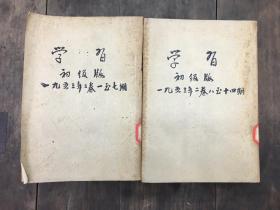 学习
初级版
一九五三年二卷一至七期
学习
初级版
一九五三年二卷八至十四期